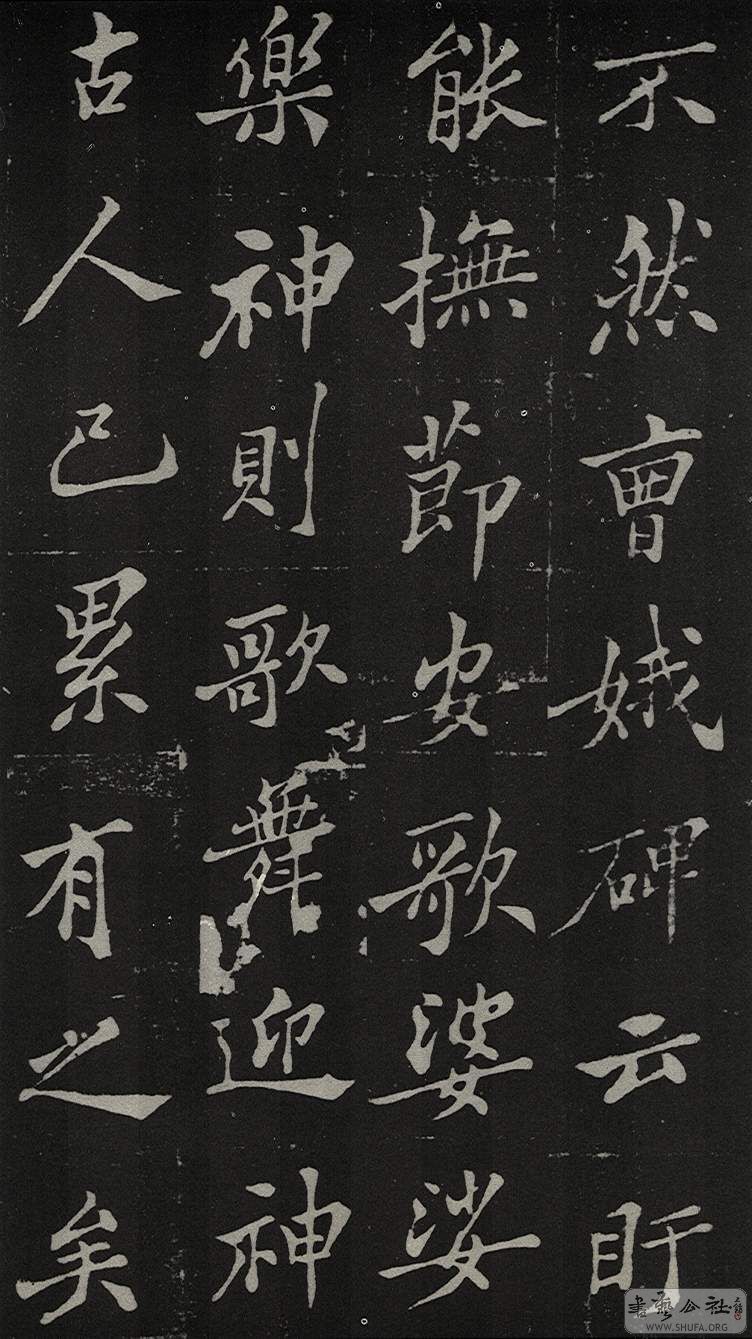 不然曹娥碑云盱
能撫節安歌婆娑
樂神則歌舞迎神
古人已累有之矣
書藝公社
WWW.SHUFA.ORG